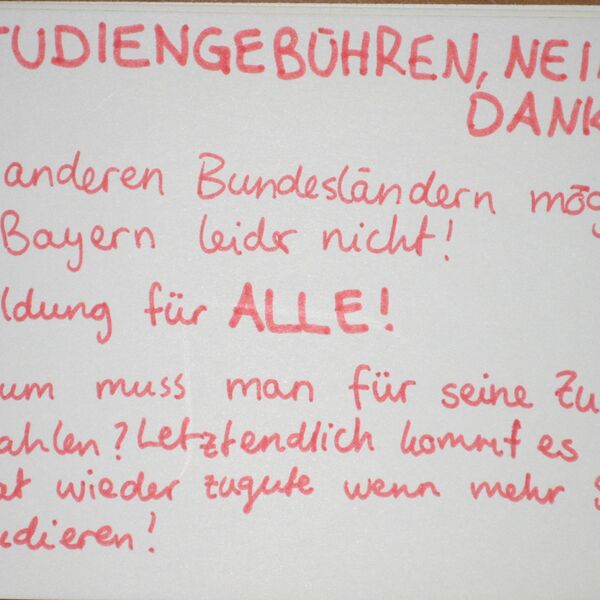 TUDIENGEBÜHREN, NEI
DANK
anderen Bundesländern mög
Bayern leider nicht!
ldung für ALLE!
um muss man für seine Zu
ahlen? Letztendlich kommt es
at wieder zugute wenn mehr S
udieren!